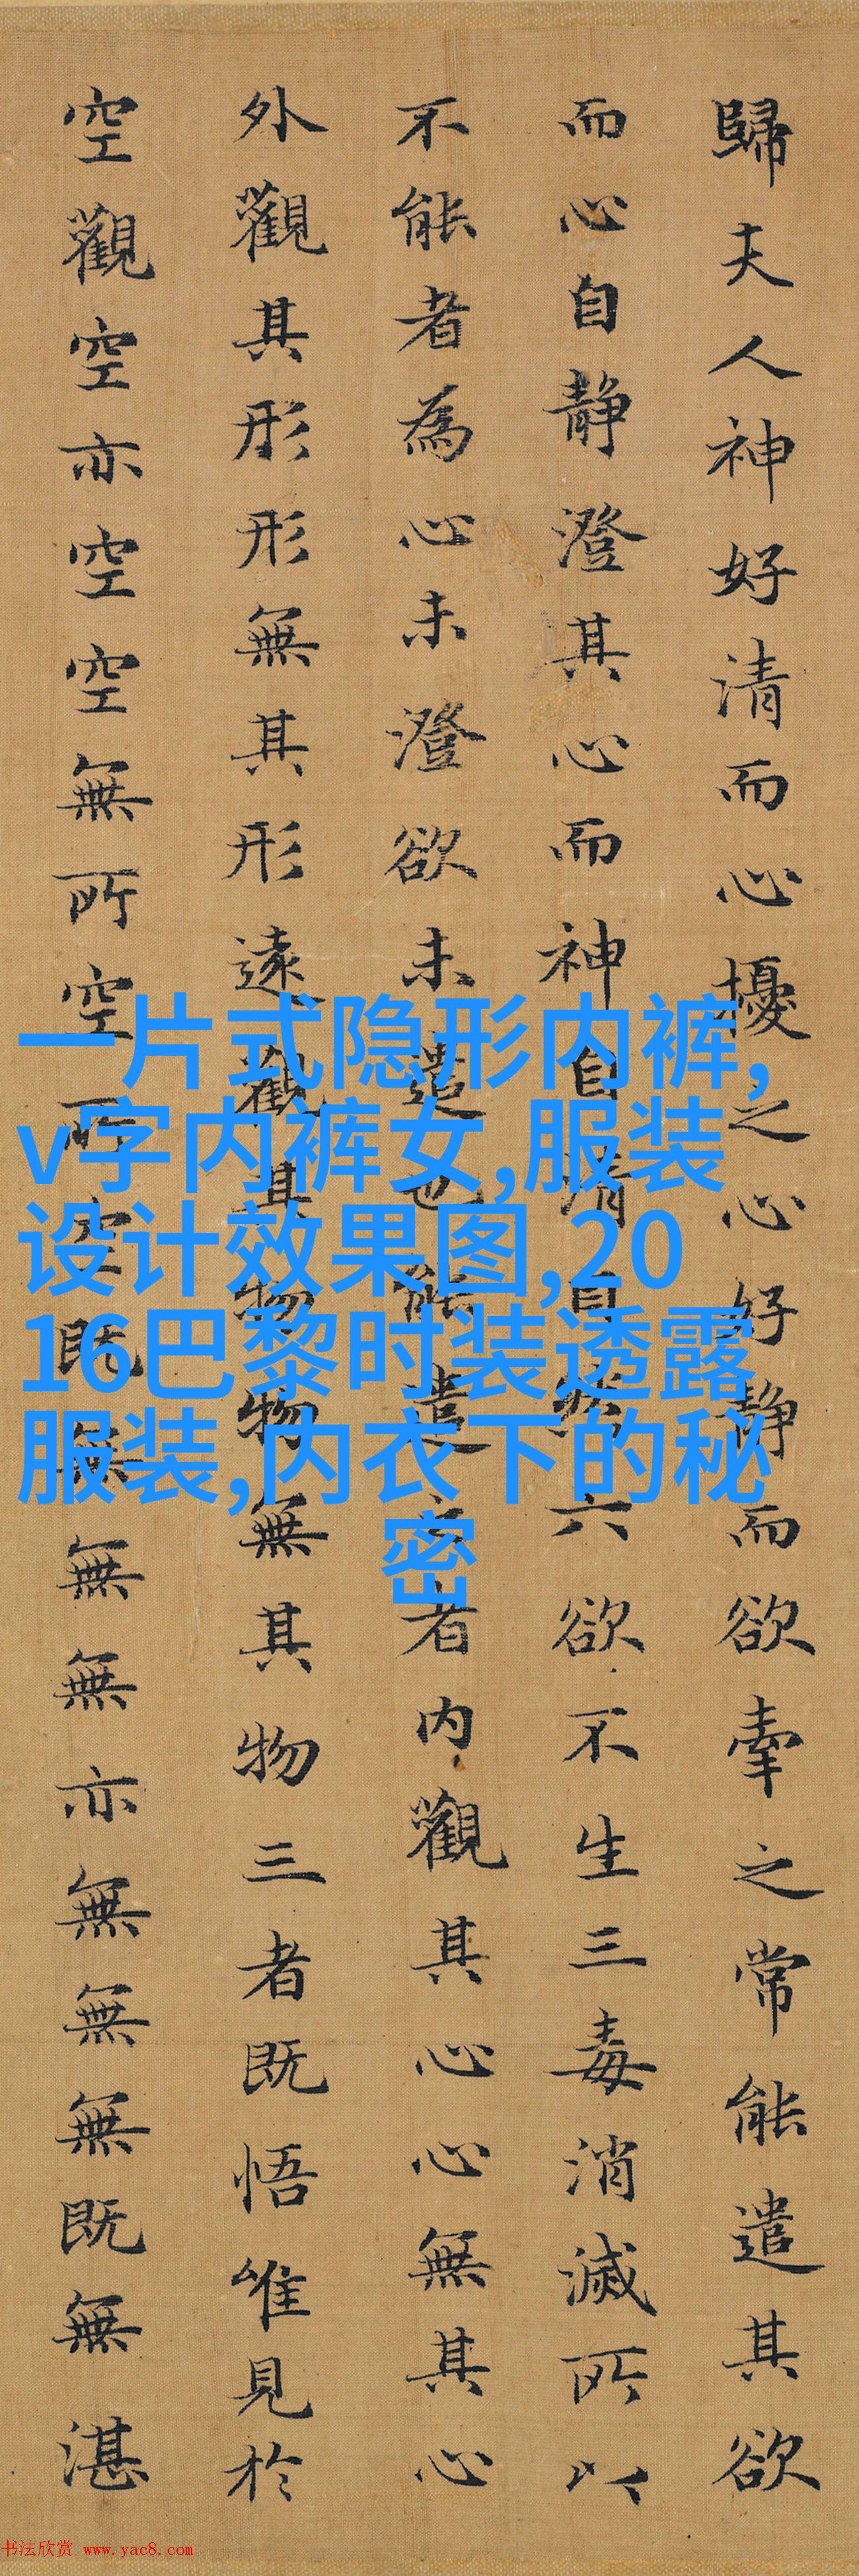 歸夫人神好清而心擾之心好静而欲牽之常能遣其欲
而心自静澄其心而神自清自然六欲不生三毒消滅所以
不能者為心未澄欲未遣也能遣之者内觀其心心無其心
外觀其形形無其形遠觀其物物無其物三者既悟唯見於
空觀空亦空空無所空所空既無無無亦無無無既無湛
一片式隐形内裤,
v字内裤女,服装
设计效果图,20
16巴黎时装透露
服装,内衣下的秘
密
书法欣赏 www.yac8.com